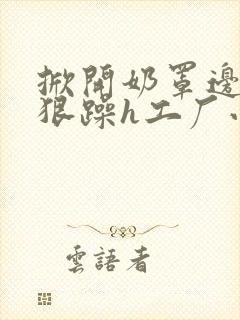 掀開奶罩邊
狠躁h工厂
雲語者